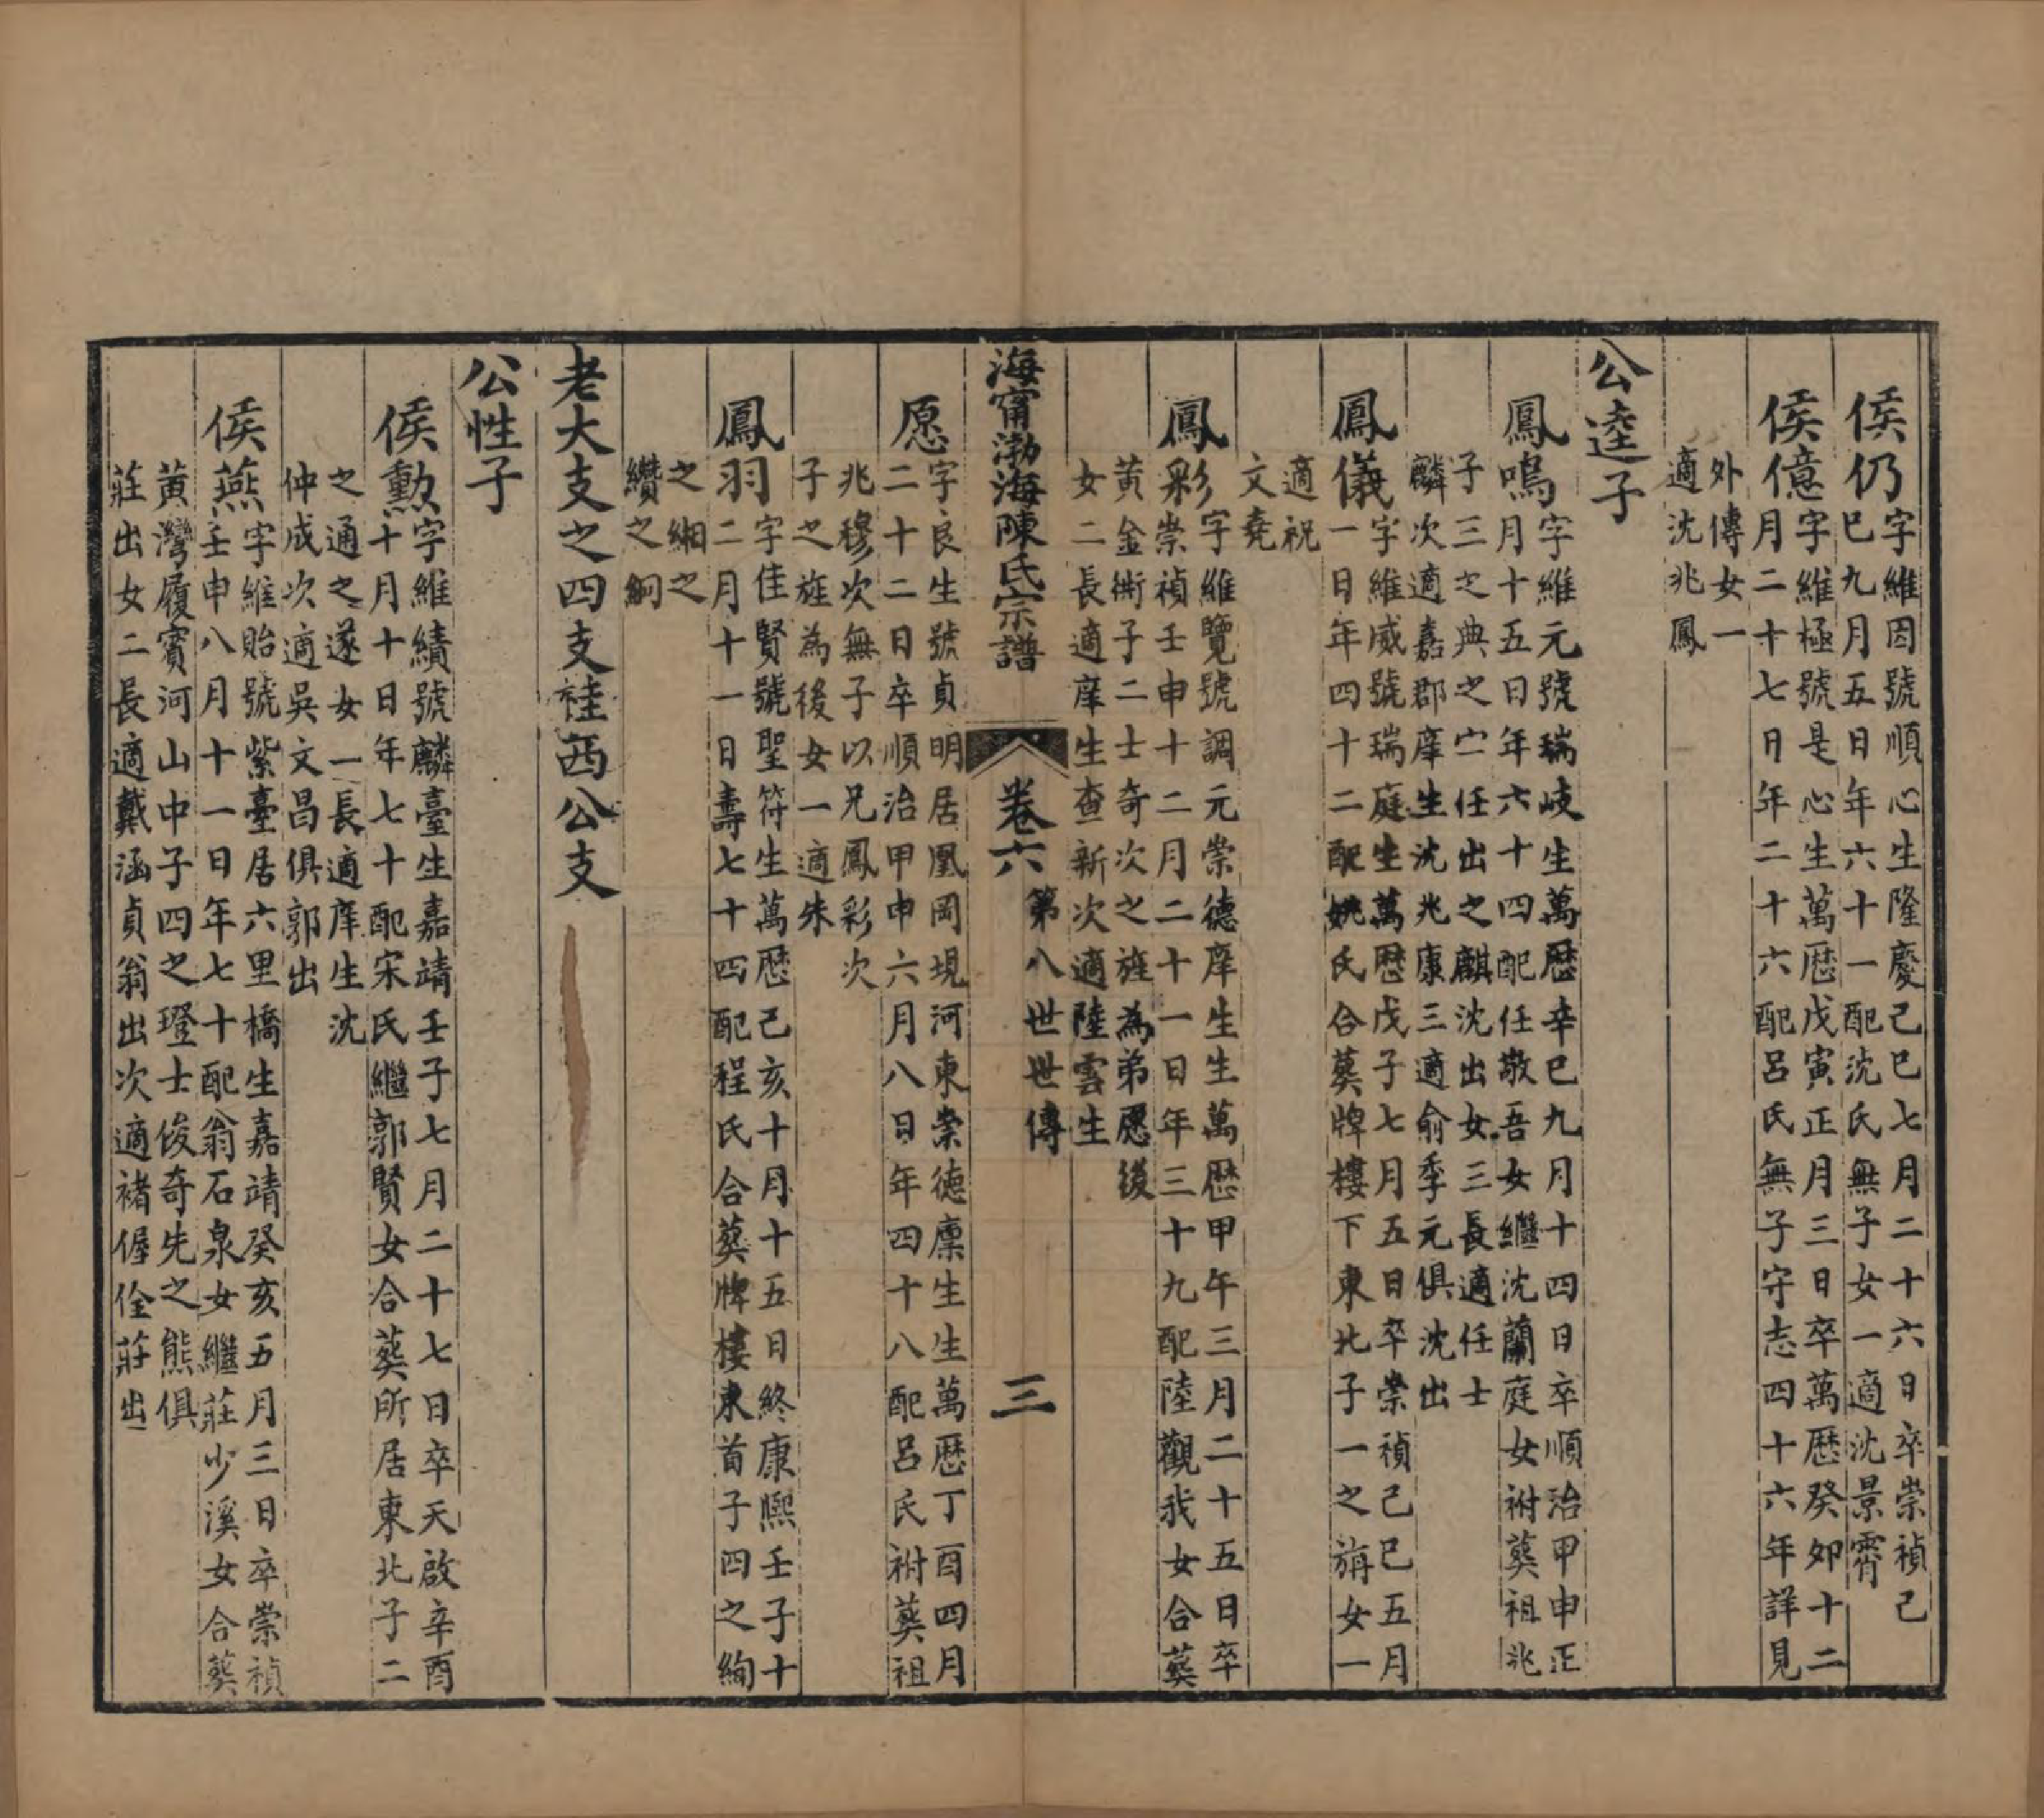 侯仍字維因號順心生隆慶己巳七月二十六日卒崇禎己
巳九月五日年六十一配沈氏無子女一適沈景霄
侯億字維極號是心生萬厯戊寅正月三日卒萬厯癸卯十二
月二十七日年二十六配呂氏無子守志四十六年詳見
外傳女一
適沈兆鳳
公逵子
鳳鳴字維元號瑞岐生萬厯辛巳九月十四日卒順治甲申正
月十五日年六十四配任敬吾女繼沈蘭庭女祔葬祖兆
子三之典之宀任出之麒沈出女三長適任士
麟次適嘉郡庠生沈兆康三適俞季元俱沈出
鳳儀字維威號瑞庭生萬厯戊子七月五日卒崇禎己巳五月
一日年四十二配姚氏合葬牌樓下東北子一之旃女一
適祝
文堯
鳳彩字維覽號調元崇德庠生生萬厯甲午三月二十五日卒
崇禎壬申十二月二十一日年三十九配陸觀我女合葬
黃金衖子二士奇次之旌為弟愿後
女二長適庠生查新次適陸雲生
海甯渤海陳氏宗譜 卷六 第八世世傳 三
愿字良生號貞明居凰岡堄河東崇德廩生生萬厯丁酉四月
二十二日卒順治甲申六月八日年四十八配呂氏祔葬祖
兆穆次無子以兄鳳彩次
子之旌為後女一適朱
鳳羽字佳賢號聖符生萬厯己亥十月十五日終康熙壬子十
二月十一日壽七十四配程氏合葬牌樓東首子四之絢
之緗之
纘之絅
老大支之四支桂西公支
公性子
侯勳字維績號麟臺生嘉靖壬子七月二十七日卒天啟辛酉
十月十日年七十配宋氏繼郭賢女合葬所居東北子二
之通之遂女一長適庠生沈
仲成次適吳文昌俱郭出
侯燕字維貽號紫臺居六里橋生嘉靖癸亥五月三日卒崇禎
壬申八月十一日年七十配翁石泉女繼莊少溪女合葬
黃灣履賓河山中子四之璒士俊奇先之熊俱
莊出女二長適戴涵貞翁出次適褚偓佺莊出